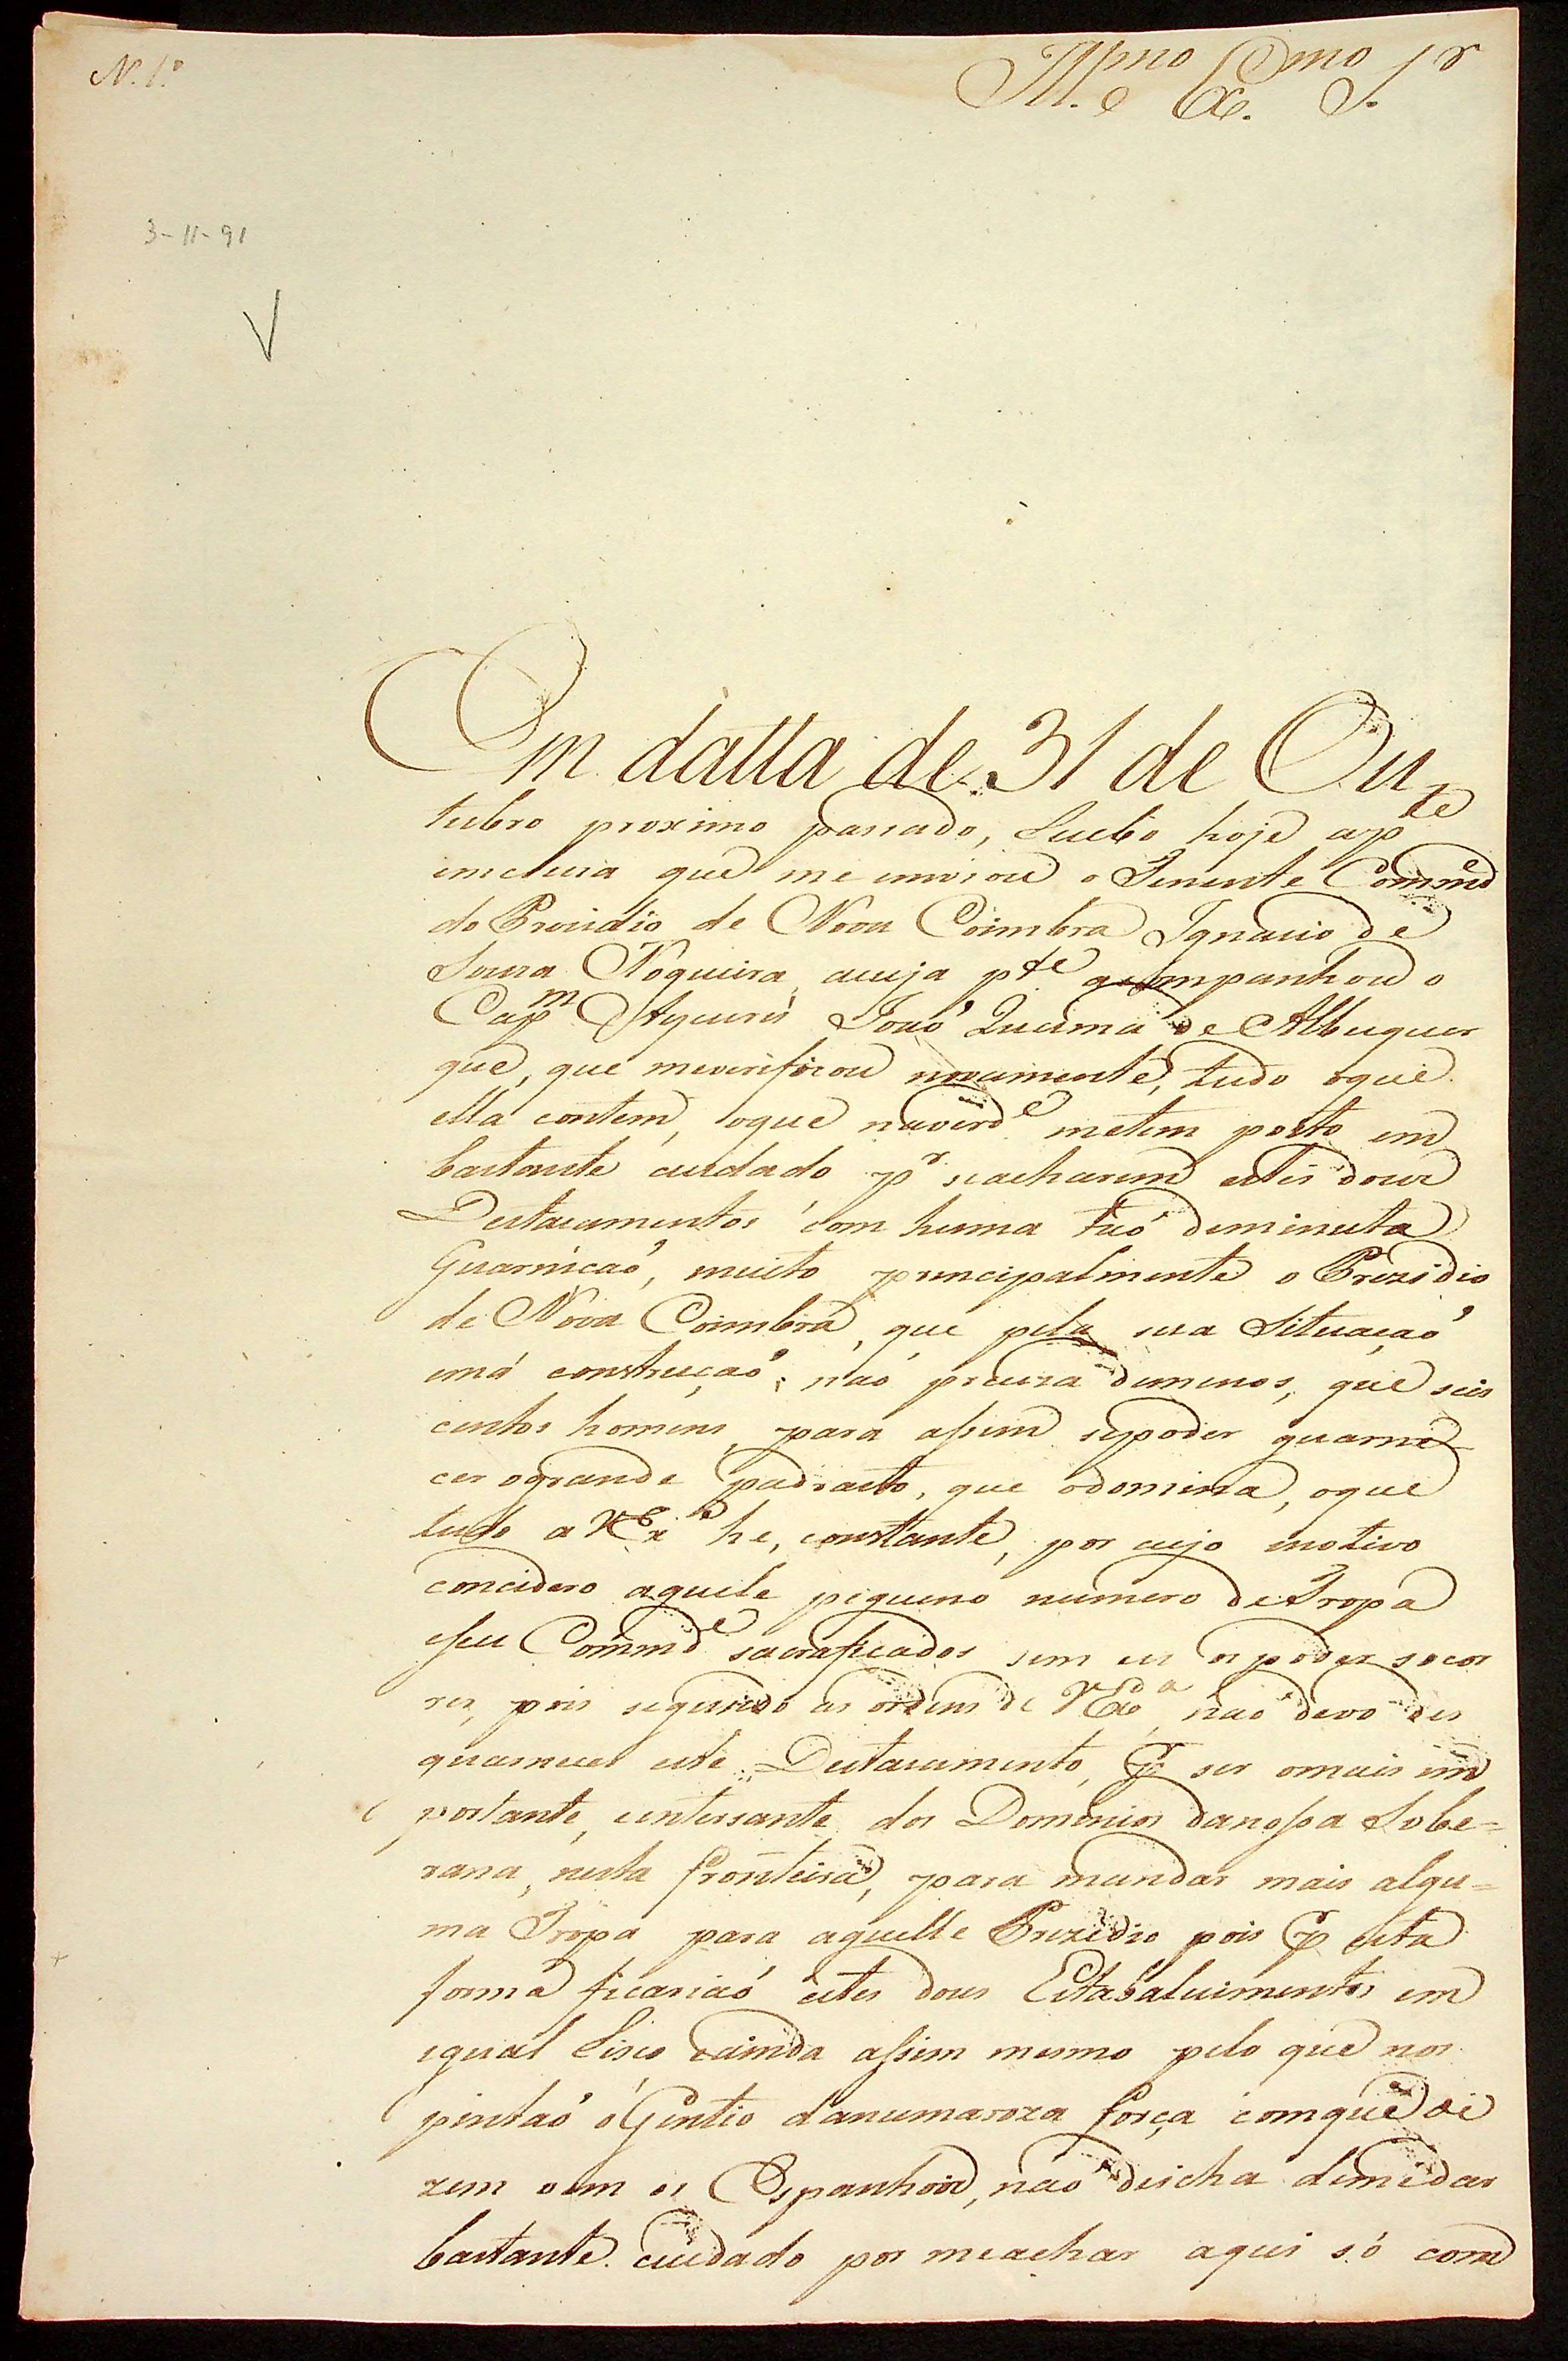 N. 1.º
Ill.mo e Ex.mo S.r
3-11-91
Em datta de 31 de Ou=
tubro proximo passado, recebo hoje a p.te
incluza que me inviou o Tenente Comm.de
do Prezidio de Nova Coimbra Ignacio de
Souza Nogueira, acuja p.te acompanhou o
Cap.m Aycurú Joaó Queima de Albuquer
que, que meverificou novamente, tudo oque
ella contem, oque naverd.e metem posto em
bastante cuidado p.r seacharem estes dous
Destacamentos com huma taó deminuta
Guarniçaó, muito principalmente o Prezidio
de Nova Coimbra, que pela sua Situaçaó
emá construçaó, naó preciza demenos, que seis
centos homens, para assim sepoder guarne
cer ogrande padrasto, que odomina, oque
tudo a VEx.a he, constante, por cujo motivo
concidero aquele pequeno numero de Tropa
eseu Comm.de sacraficados sem eu os poder socor
rer, pois segundo as ordens de VEx.a, naó devo des
guarnecer este Destacamento, p.r ser omais im
portante, eintersante dos Dominios danossa Sobe=
rana, nesta fronteira, para mandar mais algu=
ma Tropa para aquelle Prezidio pois p.r esta
forma ficariaó estes dous Estabaluimentos em
igual risco eainda assim mesmo pelo que nos
pintaó o Gentio danumaroza força comque di
zem vem os Espanhois, naó deicha demedar
bastante cuidado por meachar aqui só com